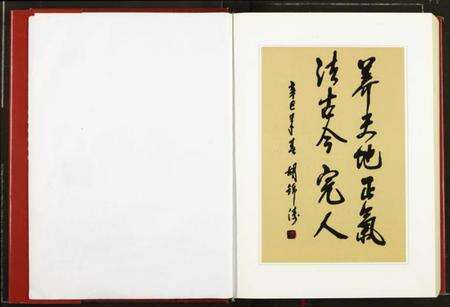 养天地正氣
法古今完人
辛巳年春 胡锦涛